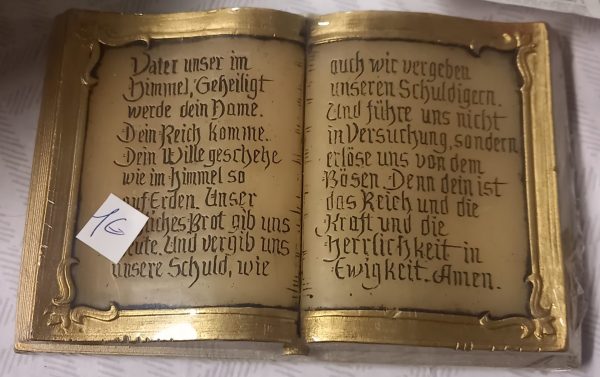 Vater unser im
Himmel, Geheiligt
werde dein Name.
Dein Reich komme.
Dein Wille geschehe
wie im Himmel so
auf Erden. Unser
liches Brot gib uns
eute. Und vergib uns
unsere Schuld, wie
1€
auch wir vergeben
unseren Schuldigern.
Und führe uns nicht
in Versuchung, sondern
erlöse uns von dem
Bösen. Denn dein ist
das Reich und die
Kraft und die
Herrlichkeit in
Ewigkeit. Amen.